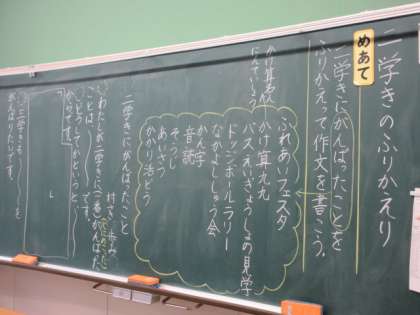 二学きのふりかえり
めあて
二学きにがんばったことを
ふりかえって作文を書こう。
ふれあいフェスタ
かけ算九九
バスえいぎょうしょの見学
ドッジボールラリー
なかよししゅう会
かん字
音読
そうじ
あいさつ
かかり活どう
二学きにがんばったこと
村き 歩み
わたしが二学きに(一番)がんばった
ことは、
です。
どうしてかというと、
からです。
三学きも
をがんばりたいです。